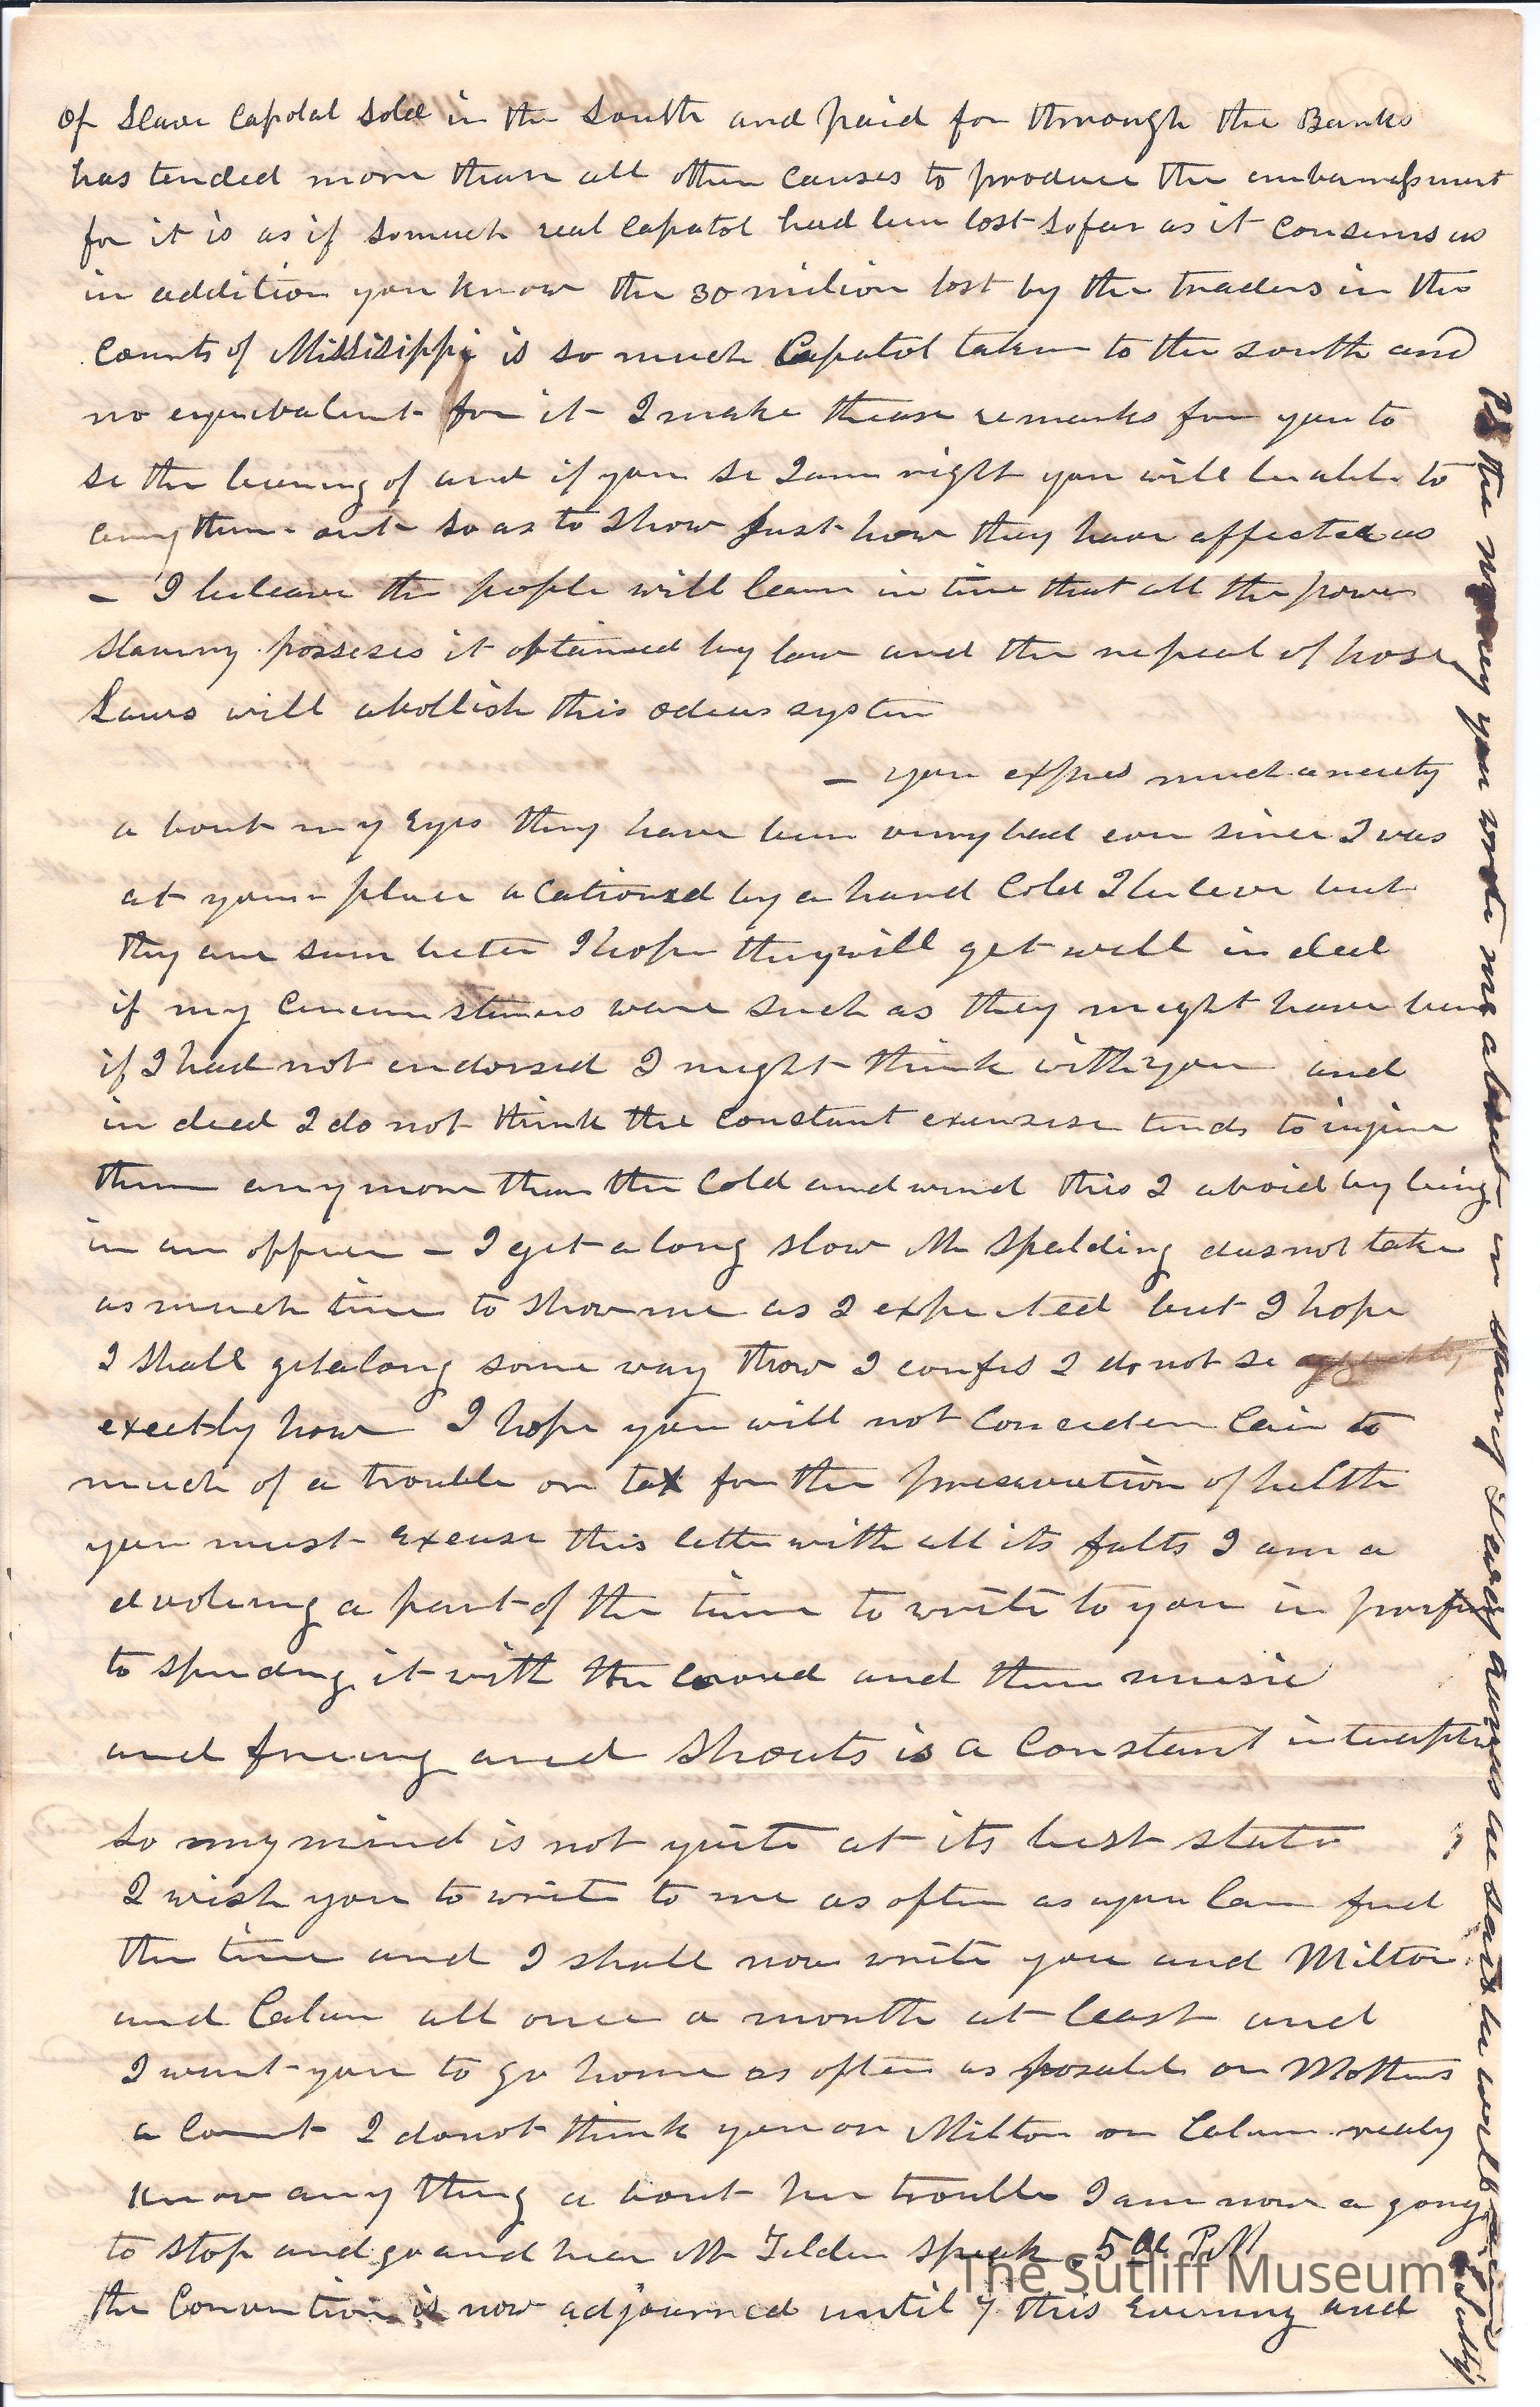 of Slave Capolal Sold in the South and paid for through the Banks
has tended more than all other Causes to produce the embarrassment
for it is as if somuch real Capatol had ben lost sofar as it Conserns us
in addition you know the 30 milion lost by the traders in the
Counts of Missisippi is so much Capatol taken to the south and
no equivalent for it I make thease remarks for you to
se the bering of and if you se I am right you will be able to
carry them out so as to Show Just how they have affected us
– I beleave the people will learn in time that all the power
Slavery posseses it obtained by law and the repeal of those
Laws will abollish this odeus system
– you expres much anxiety
a bout my Eyes they have ben very bad ever since I was
at your place acationed by a hard Cold I beleve but
they are sum beter I hope they will get well in deed
if my Circumstances ware such as they might have ben
if I had not endorsed I might think with you and
in deed I do not think the constant exersise tends to injure
them any more than the Cold and wind this I avoid by being
in an office – I get along slow Mr Spalding dus not take
as much time to Show me as I expected but I hope
I Shall get along some way thow I confes I do not se
exectly how I hope you will not Concider Cair to
much of a trouble or tax for the preservation of helth
you must Excuse this letter with all its falts I am a
devoteing a part of the time to write to you in
to spending it with the Crowd and there music
and fireing and Shouts is a Constant
So my mind is not quite at its best state
I wish you to write to me as often as you Can find
the time and I shall now write you and Milton
and Calvin all once a month at least and
I want you to go home as often as posable on Mothers
a Count I do not think you or Milton or Calvin realy
know any thing a bout her trouble I am now a going
to stop and go and hear Mr Tilden speak 5 Oc PM
the Convention is now adjourned until 7 this Evening and
PS the money you wrote me about in he said he would
The Sutliff Museum